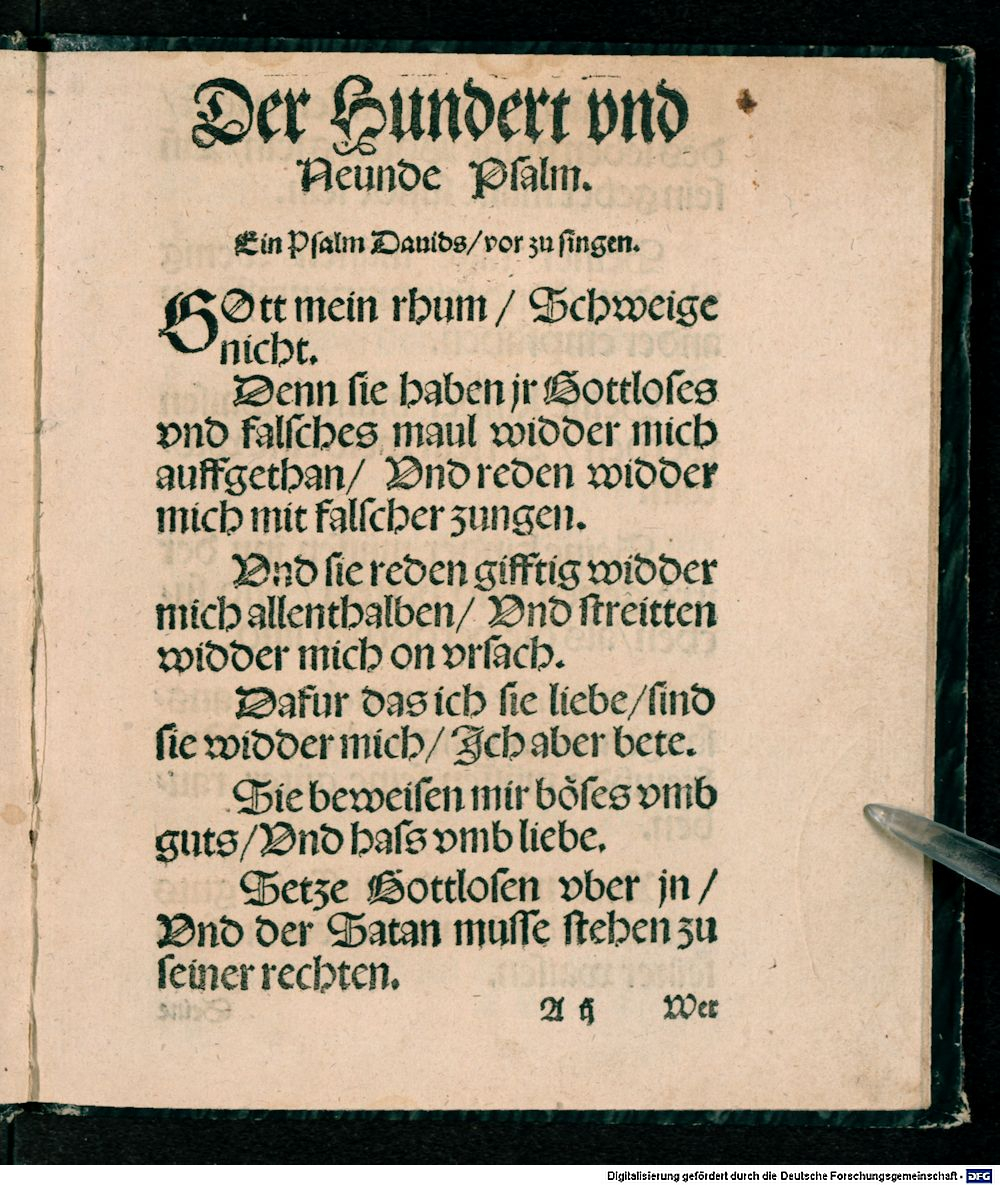 Der Hundert vnd
Neunde Psalm.
Ein Psalm Dauids/vor zu singen.
GOtt mein rhum / Schweige
nicht.
Denn sie haben jr Gottloses
vnd falsches maul widder mich
auffgethan/ Vnd reden widder
mich mit falscher zungen.
Vnd sie reden gifftig widder
mich allenthalben/ Vnd streitten
widder mich on vrsach.
Dafur das ich sie liebe/sind
sie widder mich/ Jch aber bete.
Sie beweisen mir böses vmb
guts/Vnd hass vmb liebe.
Setze Gottlosen vber jn /
Vnd der Satan musse stehen zu
seiner rechten.
A ij Wer
Digitalisierung gefördert durch die Deutsche Forschungsgemeinschaft - DFG